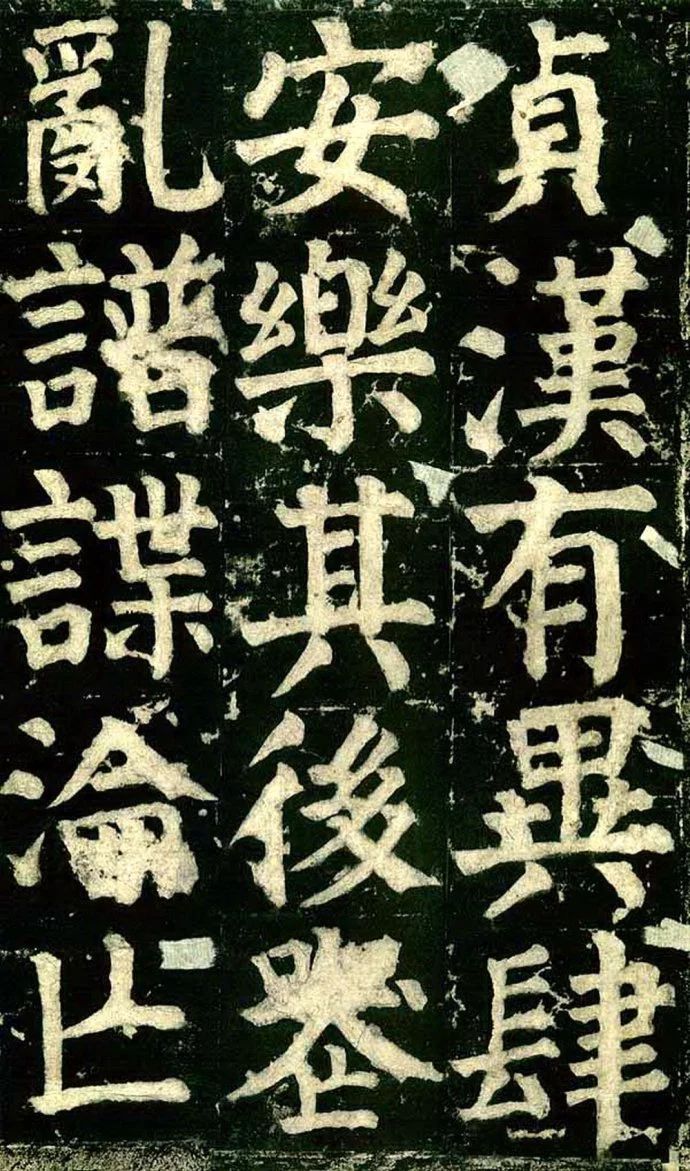 貞漢有異肆
安樂其後喪
亂譜諜淪亡